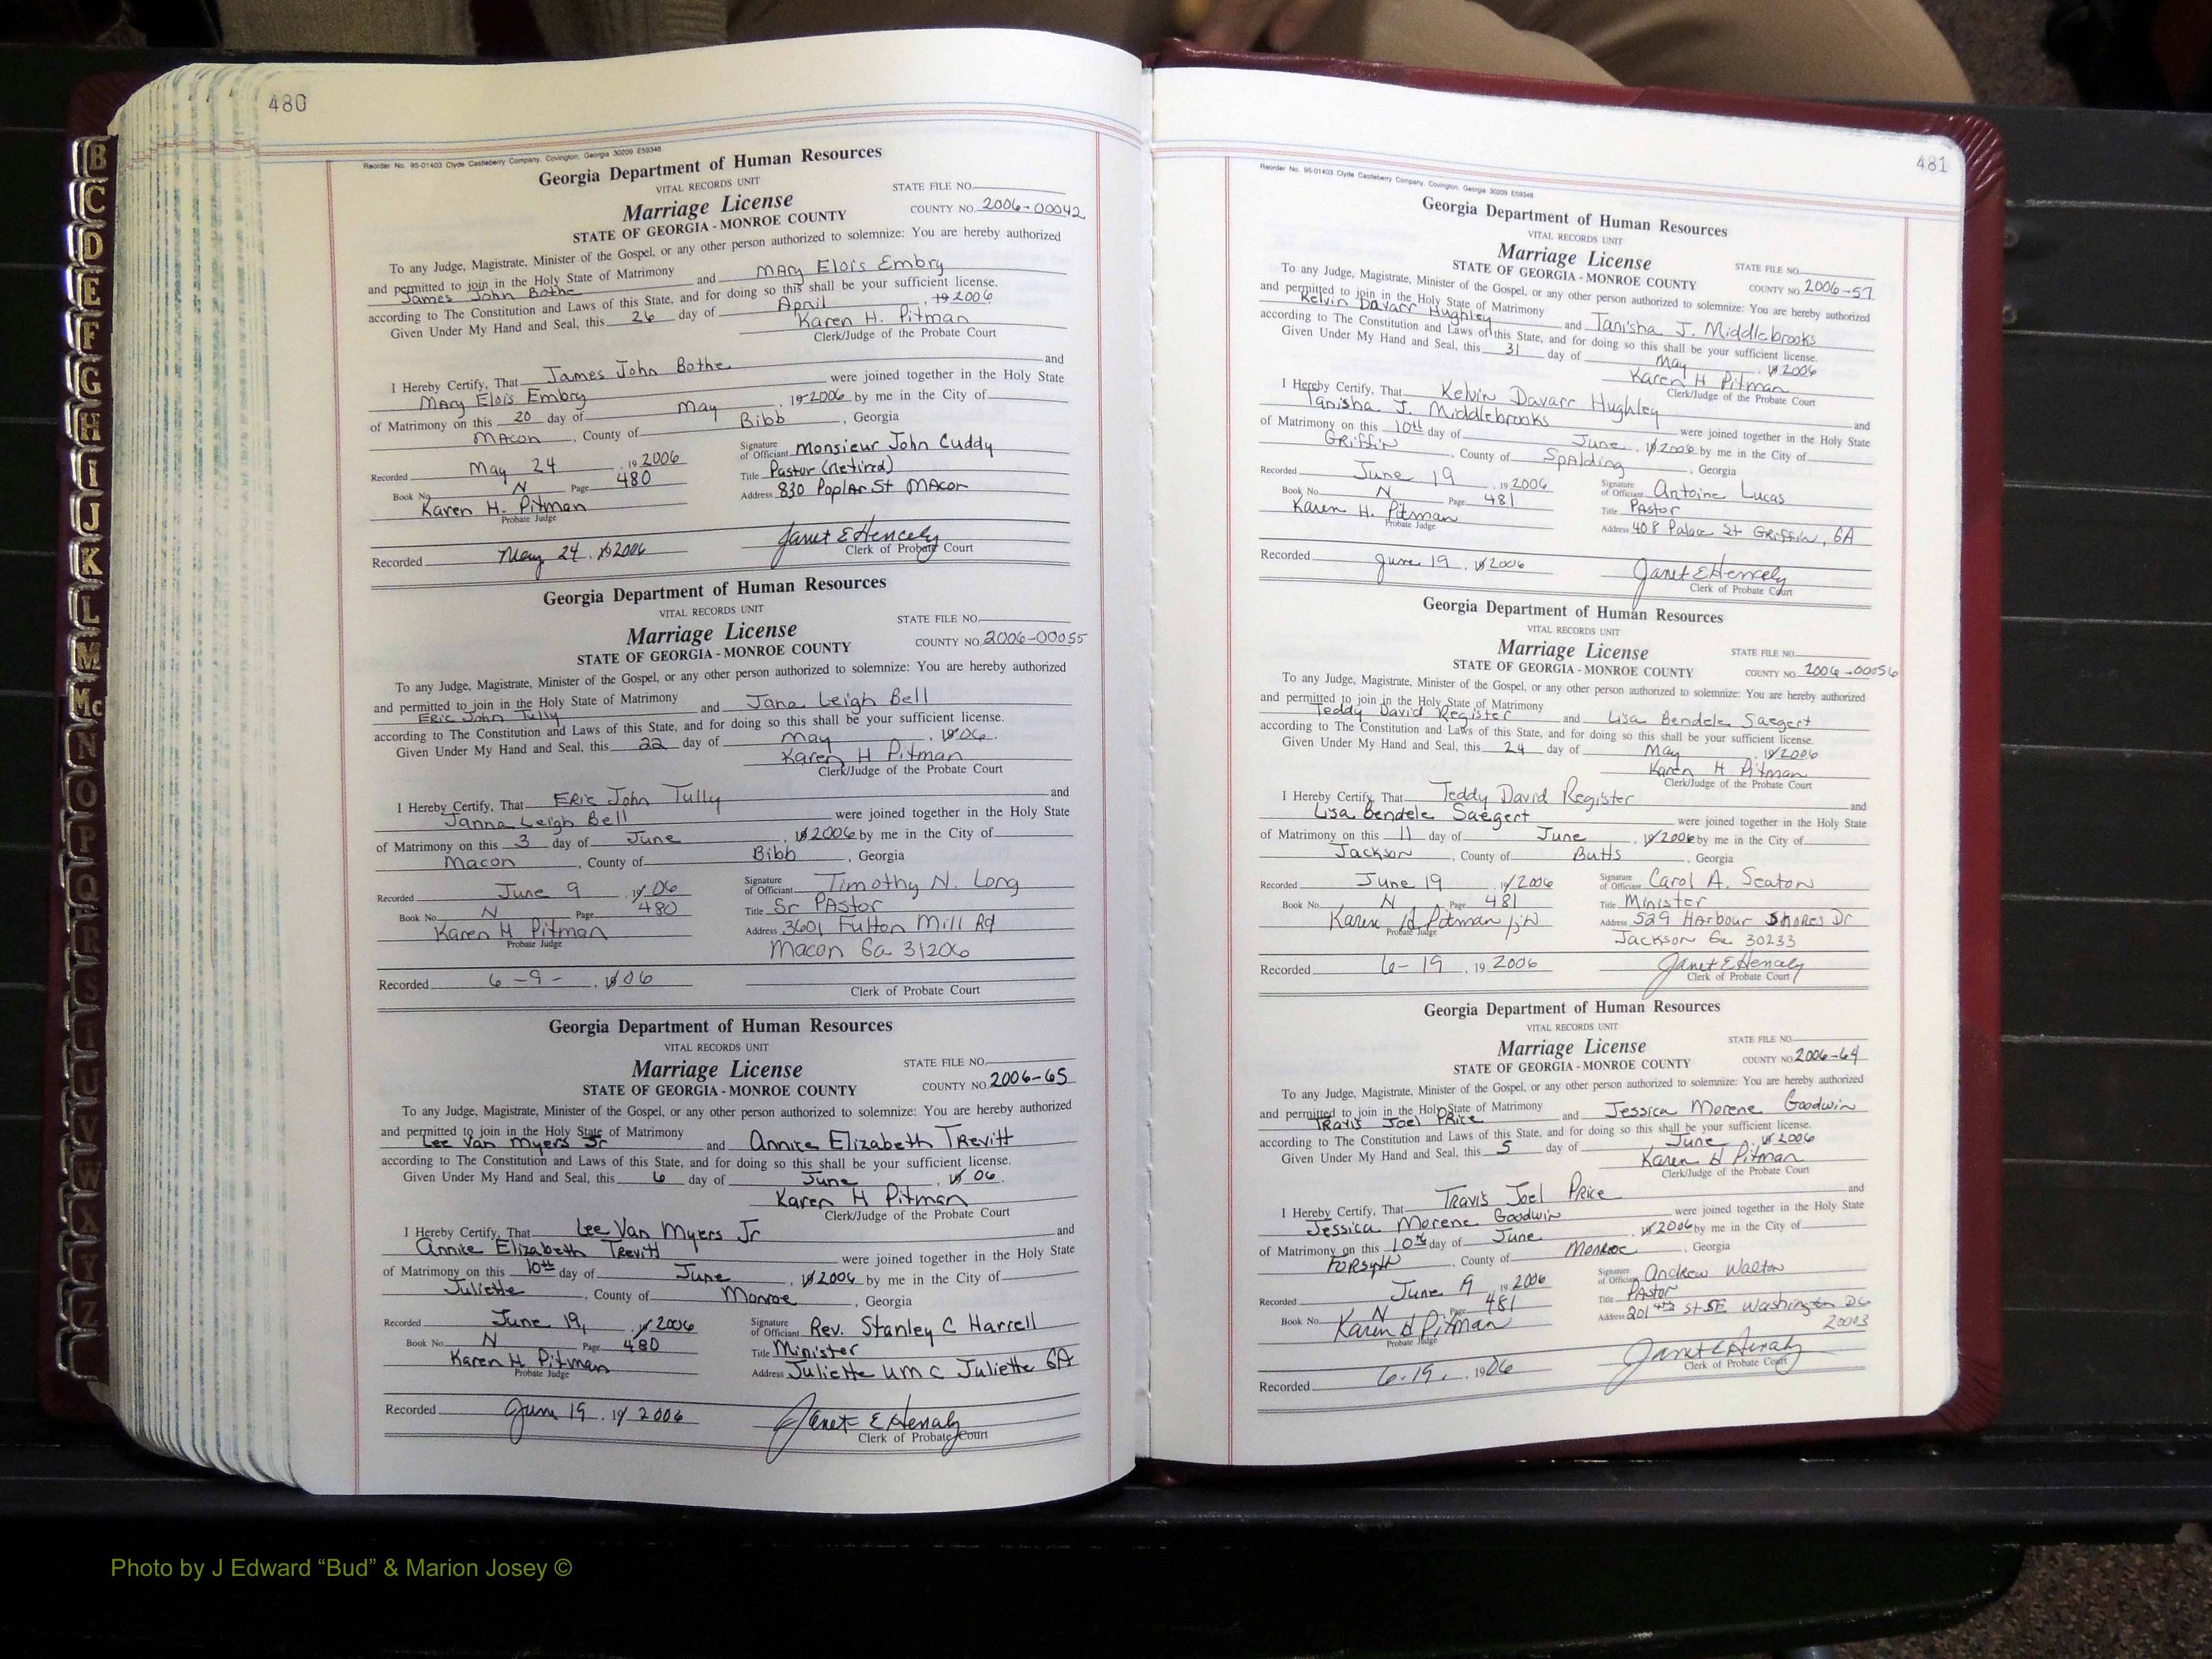 B
C
D
E
F
G
H
I
J
K
L
M
Mc
N
O
P
Q
R
S
T
U
V
W
X
Y
Z
480
Reorder No. 95-01403 Clyde Castleberry Company, Covington, Georgia 30209 E59348
Georgia Department of Human Resources
VITAL RECORDS UNIT
Marriage License
STATE OF GEORGIA - MONROE COUNTY
STATE FILE NO.
COUNTY NO. 2006-00042
To any Judge, Magistrate, Minister of the Gospel, or any other person authorized to solemnize: You are hereby authorized
and permitted to join in the Holy State of Matrimony
James John Bothe and Mary Elois Embry
according to The Constitution and Laws of this State, and for doing so this shall be your sufficient license.
Given Under My Hand and Seal, this 26 day of April, 19 2006
Karen H. Pitman
Clerk/Judge of the Probate Court
I Hereby Certify, That James John Bothe and
Mary Elois Embry were joined together in the Holy State
of Matrimony on this 20 day of May, 19 2006 by me in the City of
Macon, County of Bibb, Georgia
Recorded May 24, 19 2006
Book No. N Page 480
Karen H. Pitman
Probate Judge
Signature of Officiant Monsieur John Cuddy
Title Pastor (retired)
Address 830 Poplar St Macon
Recorded May 24, 19 2006
Janet E Hencely
Clerk of Probate Court
Georgia Department of Human Resources
VITAL RECORDS UNIT
Marriage License
STATE OF GEORGIA - MONROE COUNTY
STATE FILE NO.
COUNTY NO. 2006-00055
To any Judge, Magistrate, Minister of the Gospel, or any other person authorized to solemnize: You are hereby authorized
and permitted to join in the Holy State of Matrimony
Eric John Tully and Jana Leigh Bell
according to The Constitution and Laws of this State, and for doing so this shall be your sufficient license.
Given Under My Hand and Seal, this 22 day of May, 19 06.
Karen H Pitman
Clerk/Judge of the Probate Court
I Hereby Certify, That Eric John Tully and
Janna Leigh Bell were joined together in the Holy State
of Matrimony on this 3 day of June, 19 2006 by me in the City of
Macon, County of Bibb, Georgia
Recorded June 9, 19 06
Book No. N Page 480
Karen H Pitman
Probate Judge
Signature of Officiant Timothy N. Long
Title Sr Pastor
Address 3601 Fulton Mill Rd
Macon Ga 31206
Recorded 6-9-, 19 06
Clerk of Probate Court
Georgia Department of Human Resources
VITAL RECORDS UNIT
Marriage License
STATE OF GEORGIA - MONROE COUNTY
STATE FILE NO.
COUNTY NO. 2006-65
To any Judge, Magistrate, Minister of the Gospel, or any other person authorized to solemnize: You are hereby authorized
and permitted to join in the Holy State of Matrimony
Lee Van Myers Jr and Annice Elizabeth Trevitt
according to The Constitution and Laws of this State, and for doing so this shall be your sufficient license.
Given Under My Hand and Seal, this 6 day of June, 19 06.
Karen H Pitman
Clerk/Judge of the Probate Court
I Hereby Certify, That Lee Van Myers Jr and
Annice Elizabeth Trevitt were joined together in the Holy State
of Matrimony on this 10th day of June, 19 2006 by me in the City of
Juliette, County of Monroe, Georgia
Recorded June 19, 19 2006
Book No. N Page 480
Karen H Pitman
Probate Judge
Signature of Officiant Rev. Stanley C Harrell
Title Minister
Address Juliette UMC Juliette GA
Recorded June 19, 19 2006
Janet E Hencely
Clerk of Probate Court
481
Reorder No. 95-01403 Clyde Castleberry Company, Covington, Georgia 30209 E59348
Georgia Department of Human Resources
VITAL RECORDS UNIT
Marriage License
STATE OF GEORGIA - MONROE COUNTY
STATE FILE NO.
COUNTY NO. 2006-57
To any Judge, Magistrate, Minister of the Gospel, or any other person authorized to solemnize: You are hereby authorized
and permitted to join in the Holy State of Matrimony
Kelvin Davarr Hughley and Tanisha J. Middlebrooks
according to The Constitution and Laws of this State, and for doing so this shall be your sufficient license.
Given Under My Hand and Seal, this 31 day of May, 19 2006
Karen H Pitman
Clerk/Judge of the Probate Court
I Hereby Certify, That Kelvin Davarr Hughley and
Tanisha J. Middlebrooks were joined together in the Holy State
of Matrimony on this 10th day of June, 19 2006 by me in the City of
Griffin, County of Spalding, Georgia
Recorded June 19, 19 2006
Book No. N Page 481
Karen H. Pitman
Probate Judge
Signature of Officiant Antoine Lucas
Title Pastor
Address 408 Palace St Griffin, GA
Recorded June 19, 19 2006
Janet E Hencely
Clerk of Probate Court
Georgia Department of Human Resources
VITAL RECORDS UNIT
Marriage License
STATE OF GEORGIA - MONROE COUNTY
STATE FILE NO.
COUNTY NO. 2006-00056
To any Judge, Magistrate, Minister of the Gospel, or any other person authorized to solemnize: You are hereby authorized
and permitted to join in the Holy State of Matrimony
Teddy David Register and Lisa Bendele Saegert
according to The Constitution and Laws of this State, and for doing so this shall be your sufficient license.
Given Under My Hand and Seal, this 24 day of May, 19 2006
Karen H Pitman
Clerk/Judge of the Probate Court
I Hereby Certify, That Teddy David Register and
Lisa Bendele Saegert were joined together in the Holy State
of Matrimony on this 11 day of June, 19 2006 by me in the City of
Jackson, County of Butts, Georgia
Recorded June 19, 19 2006
Book No. N Page 481
Karen H Pitman
Probate Judge
Signature of Officiant Carol A. Seaton
Title Minister
Address 529 Harbour Shores Dr
Jackson Ga 30233
Recorded 6-19, 19 2006
Janet E Hencely
Clerk of Probate Court
Georgia Department of Human Resources
VITAL RECORDS UNIT
Marriage License
STATE OF GEORGIA - MONROE COUNTY
STATE FILE NO.
COUNTY NO. 2006-64
To any Judge, Magistrate, Minister of the Gospel, or any other person authorized to solemnize: You are hereby authorized
and permitted to join in the Holy State of Matrimony
Travis Joel Price and Jessica Morene Goodwin
according to The Constitution and Laws of this State, and for doing so this shall be your sufficient license.
Given Under My Hand and Seal, this 5 day of June, 19 2006
Karen H Pitman
Clerk/Judge of the Probate Court
I Hereby Certify, That Travis Joel Price and
Jessica Morene Goodwin were joined together in the Holy State
of Matrimony on this 10th day of June, 19 2006 by me in the City of
Forsyth, County of Monroe, Georgia
Recorded June 19, 19 2006
Book No. N Page 481
Karen H Pitman
Probate Judge
Signature of Officiant Andrew Walton
Title Pastor
Address 201 4th St SE Washington DC
20003
Recorded 6-19, 19 06
Janet E Hencely
Clerk of Probate Court
Photo by J Edward “Bud” & Marion Josey ©